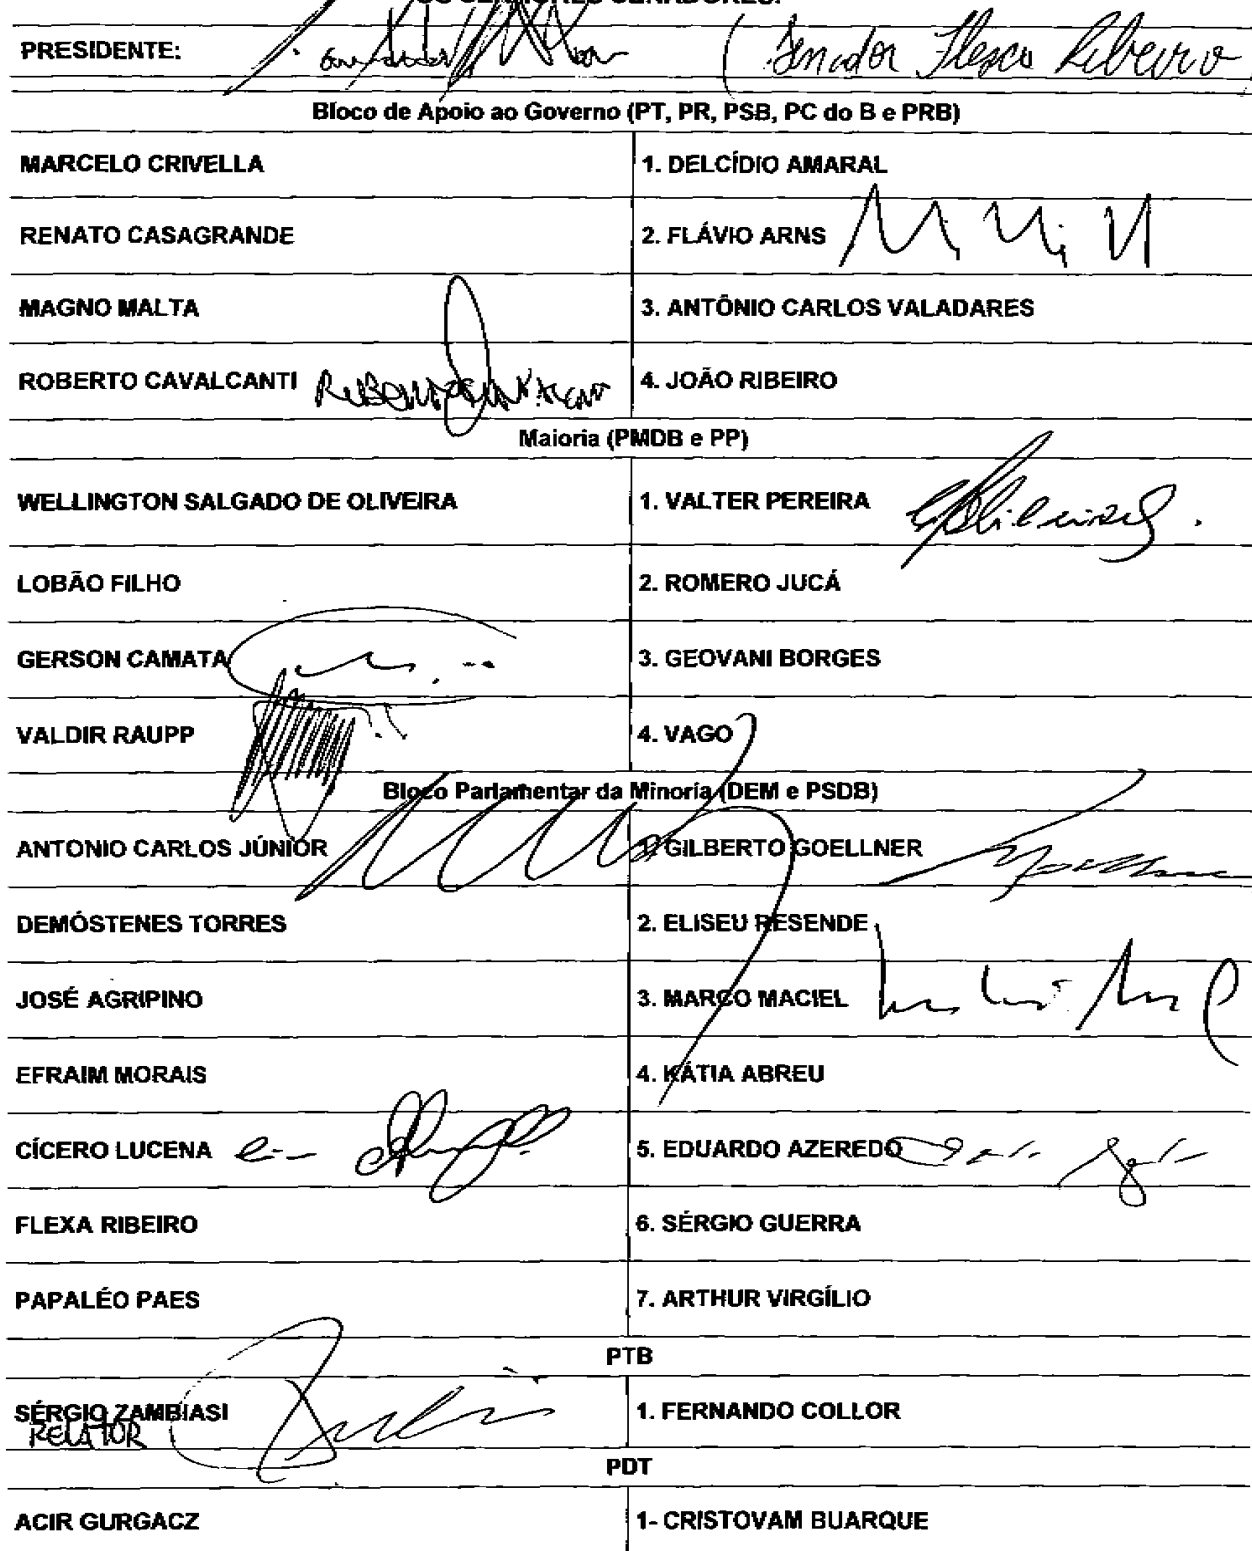 OS SENHORES SENADORES:
PRESIDENTE: (Senador Flexa Ribeiro
Bloco de Apoio ao Governo (PT, PR, PSB, PC do B e PRB)
MARCELO CRIVELLA 1. DELCÍDIO AMARAL
RENATO CASAGRANDE 2. FLÁVIO ARNS
MAGNO MALTA 3. ANTÔNIO CARLOS VALADARES
ROBERTO CAVALCANTI 4. JOÃO RIBEIRO
Maioria (PMDB e PP)
WELLINGTON SALGADO DE OLIVEIRA 1. VALTER PEREIRA
LOBÃO FILHO 2. ROMERO JUCÁ
GERSON CAMATA 3. GEOVANI BORGES
VALDIR RAUPP 4. VAGO
Bloco Parlamentar da Minoria (DEM e PSDB)
ANTONIO CARLOS JÚNIOR 1. GILBERTO GOELLNER
DEMÓSTENES TORRES 2. ELISEU RESENDE
JOSÉ AGRIPINO 3. MARCO MACIEL
EFRAIM MORAIS 4. KÁTIA ABREU
CÍCERO LUCENA 5. EDUARDO AZEREDO
FLEXA RIBEIRO 6. SÉRGIO GUERRA
PAPALÉO PAES 7. ARTHUR VIRGÍLIO
PTB
SÉRGIO ZAMBIASI 1. FERNANDO COLLOR
RELATOR
PDT
ACIR GURGACZ 1- CRISTOVAM BUARQUE